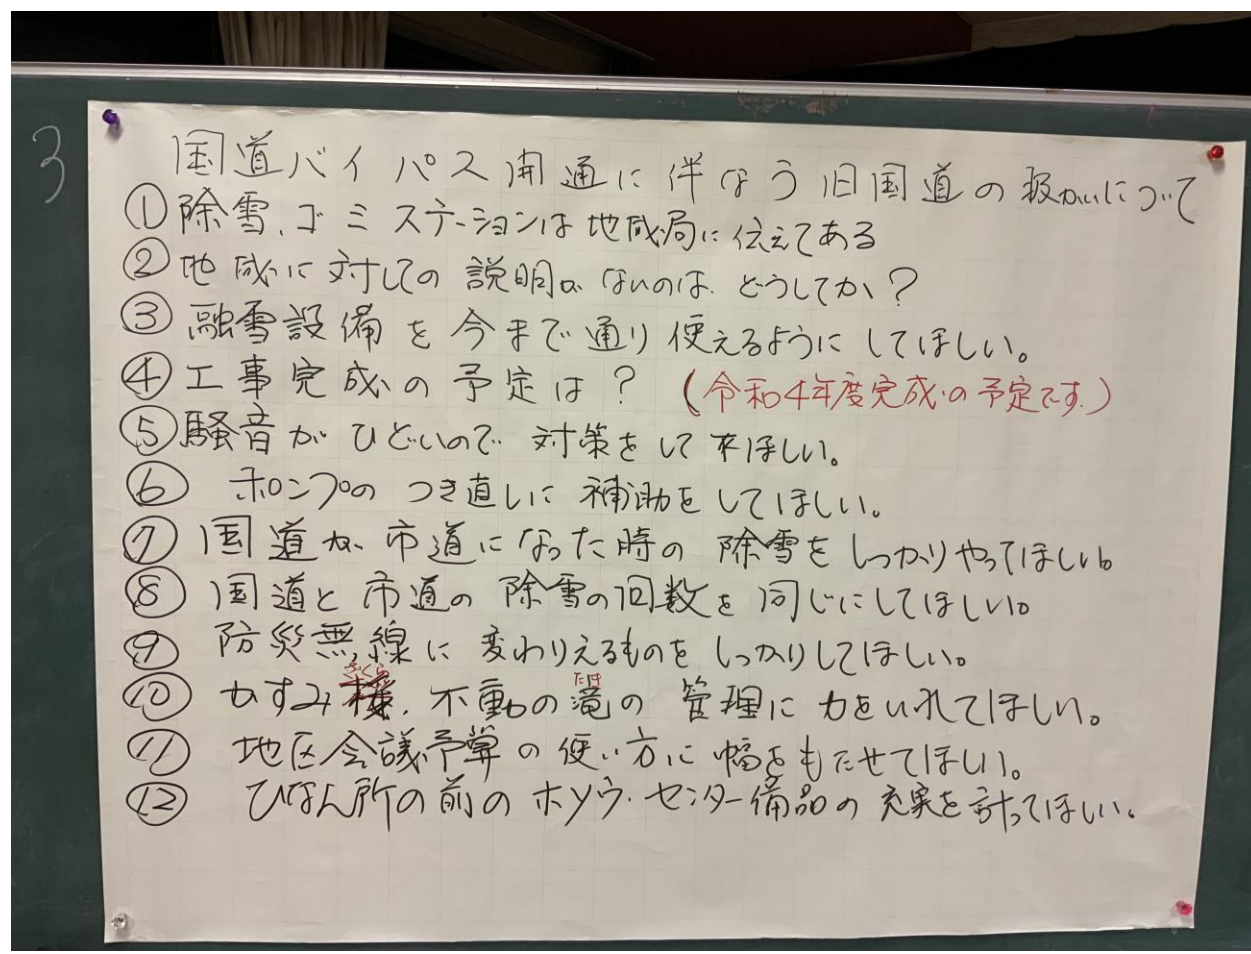 3
国道バイパス開通に伴なう旧国道の扱かいについて
①除雪、ゴミステーションは地域局に伝えてある
②地域に対しての説明がないのはどうしてか?
③融雪設備を今まで通り使えるようにしてほしい。
④工事完成の予定は? (令和4年度完成の予定です。)
⑤騒音がひどいので対策をして来ほしい。
⑥ポンプのつき直しに補助をしてほしい。
⑦国道が市道になった時の除雪をしっかりやってほしい。
⑧国道と市道の除雪の回数を同じにしてほしい。
⑨防災無線に変わりえるものをしっかりしてほしい。
ざくら たき
⑩かすみ桜、不動の滝の管理に力をいれてほしい。
⑪地区会議予算の使い方に幅をもたせてほしい。
⑫ひなん所の前のホソウ・センター備品の充実を計ってほしい。